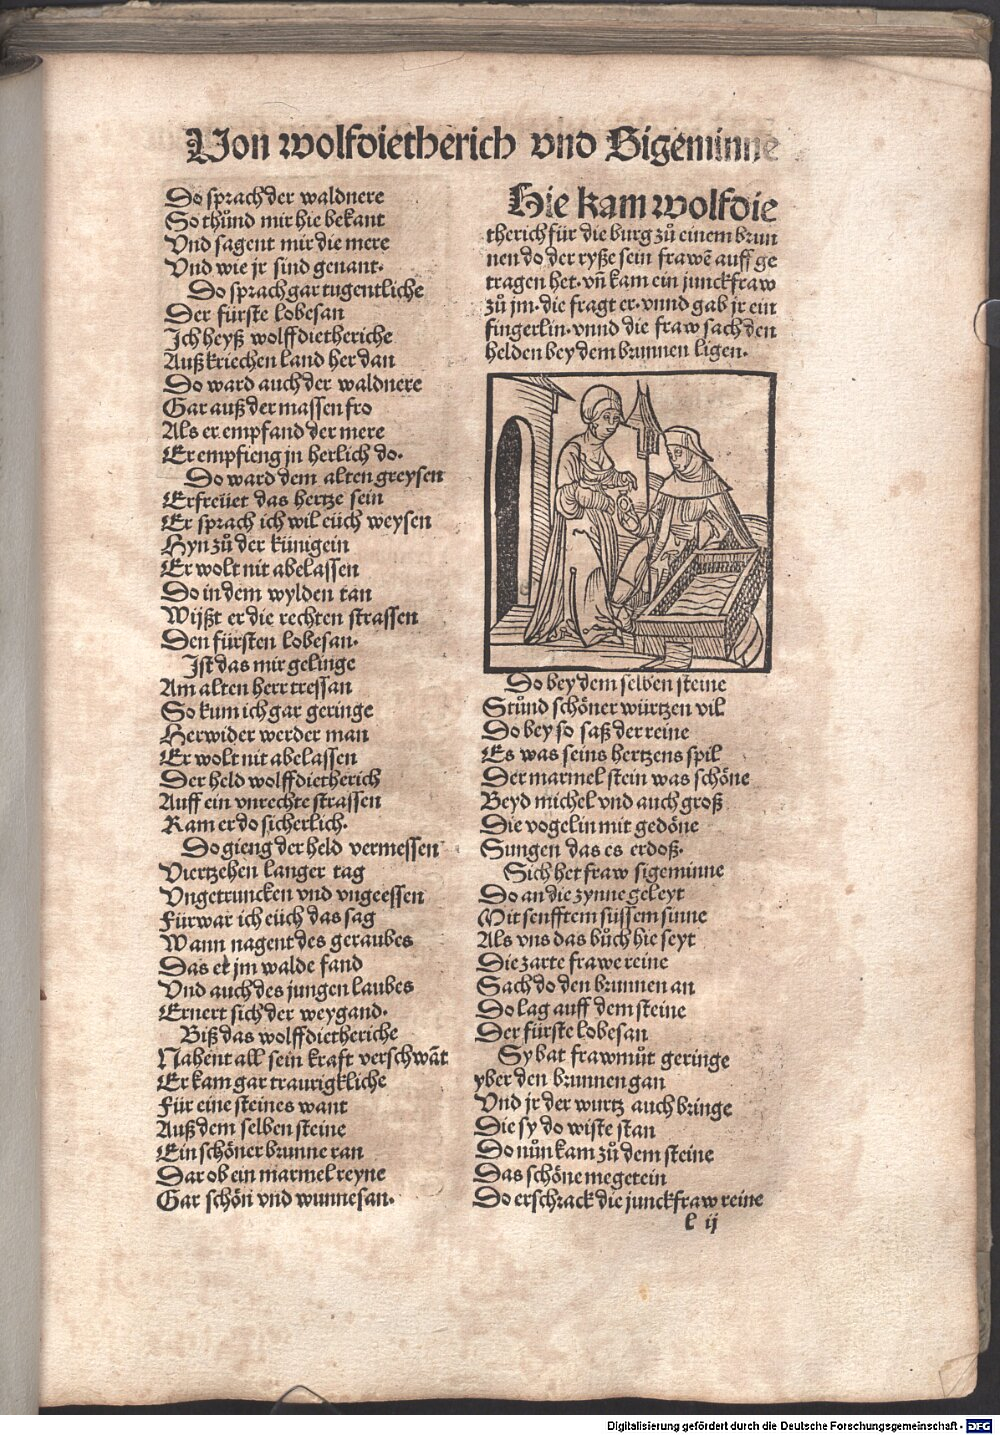 Von wolfdietherich vnd Sigeminne
Do sprach der waldnere
So thůnd mir hie bekant
Vnd sagent mir die mere
Vnd wie jr sind genant.
Do sprach gar tugentliche
Der fürste lobesan
Ich heyß wolffdietheriche
Auß kriechen land her dan
Do ward auch der waldnere
Gar auß der massen fro
Als er empfand der mere
Er empfieng jn herlich do.
Do ward dem alten greysen
Erfreüet das hertze sein
Er sprach ich wil eüch weysen
Hyn zů der künigein
Er wolt nit abelassen
Do in dem wylden tan
Wijßt er die rechten strassen
Den fürsten lobesan.
Ist das mir gelinge
Am alten herr tressan
So kum ich gar geringe
Herwider werder man
Er wolt nit abelassen
Der held wolffdietherich
Auff ein vnrechte strassen
Kam er do sicherlich.
Do gieng der held vermessen
Viertzehen langer tag
Vngetruncken vnd vngeessen
Fürwar ich eüch das sag
Wann nagent des geraubes
Das er jm walde fand
Vnd auch des jungen laubes
Ernert sich der weygand.
Biß das wolffdietheriche
Nahent all sein kraft verschwāt
Er kam gar traurigkliche
Für eine steines want
Auß dem selben steine
Ein schöner brunne ran
Dar ob ein marmel reyne
Gar schön vnd wunnesan.
Hie kam wolfdie
therich für die burg zů einem brun
nen do der ryße sein frawē auff ge
tragen het. vñ kam ein junckfraw
zů jm. die fragt er. vnnd gab jr ein
fingerlin. vnnd die fraw sach den
helden bey dem brunnen ligen.
Do bey dem selben steine
Stůnd schöner würtzen vil
Do bey so saß der reine
Es was seins hertzens spil
Der marmel stein was schöne
Beyd michel vnd auch groß
Die vogelin mit gedöne
Sungen das es erdoß.
Sich het fraw sigeminne
Do an die zynne geleyt
Mit senfftem süssem sinne
Als vns das bůch hie seyt
Die zarte frawe reine
Sach do den brunnen an
Do lag auff dem steine
Der fürste lobesan
Sy bat frawmůt geringe
yber den brunnen gan
Vnd jr der wurtz auch bringe
Die sy do wiste stan
Do nůn kam zů dem steine
Das schöne megetein
Do erschrack die junckfraw reine
l ij
Digitalisierung gefördert durch die Deutsche Forschungsgemeinschaft - DFG